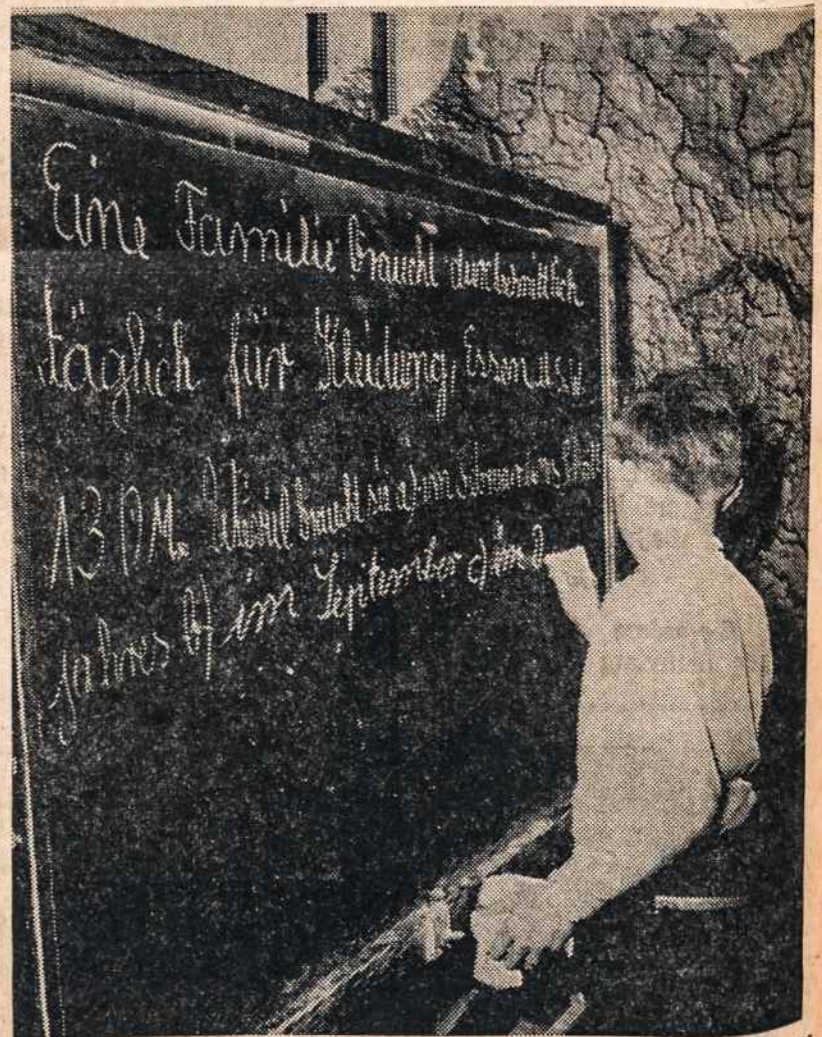 Eine Familie braucht durchschnittlich
täglich für Kleidung, Essen usw.
13 DM. Wieviel braucht sie a) im
jahres b) im September c) im